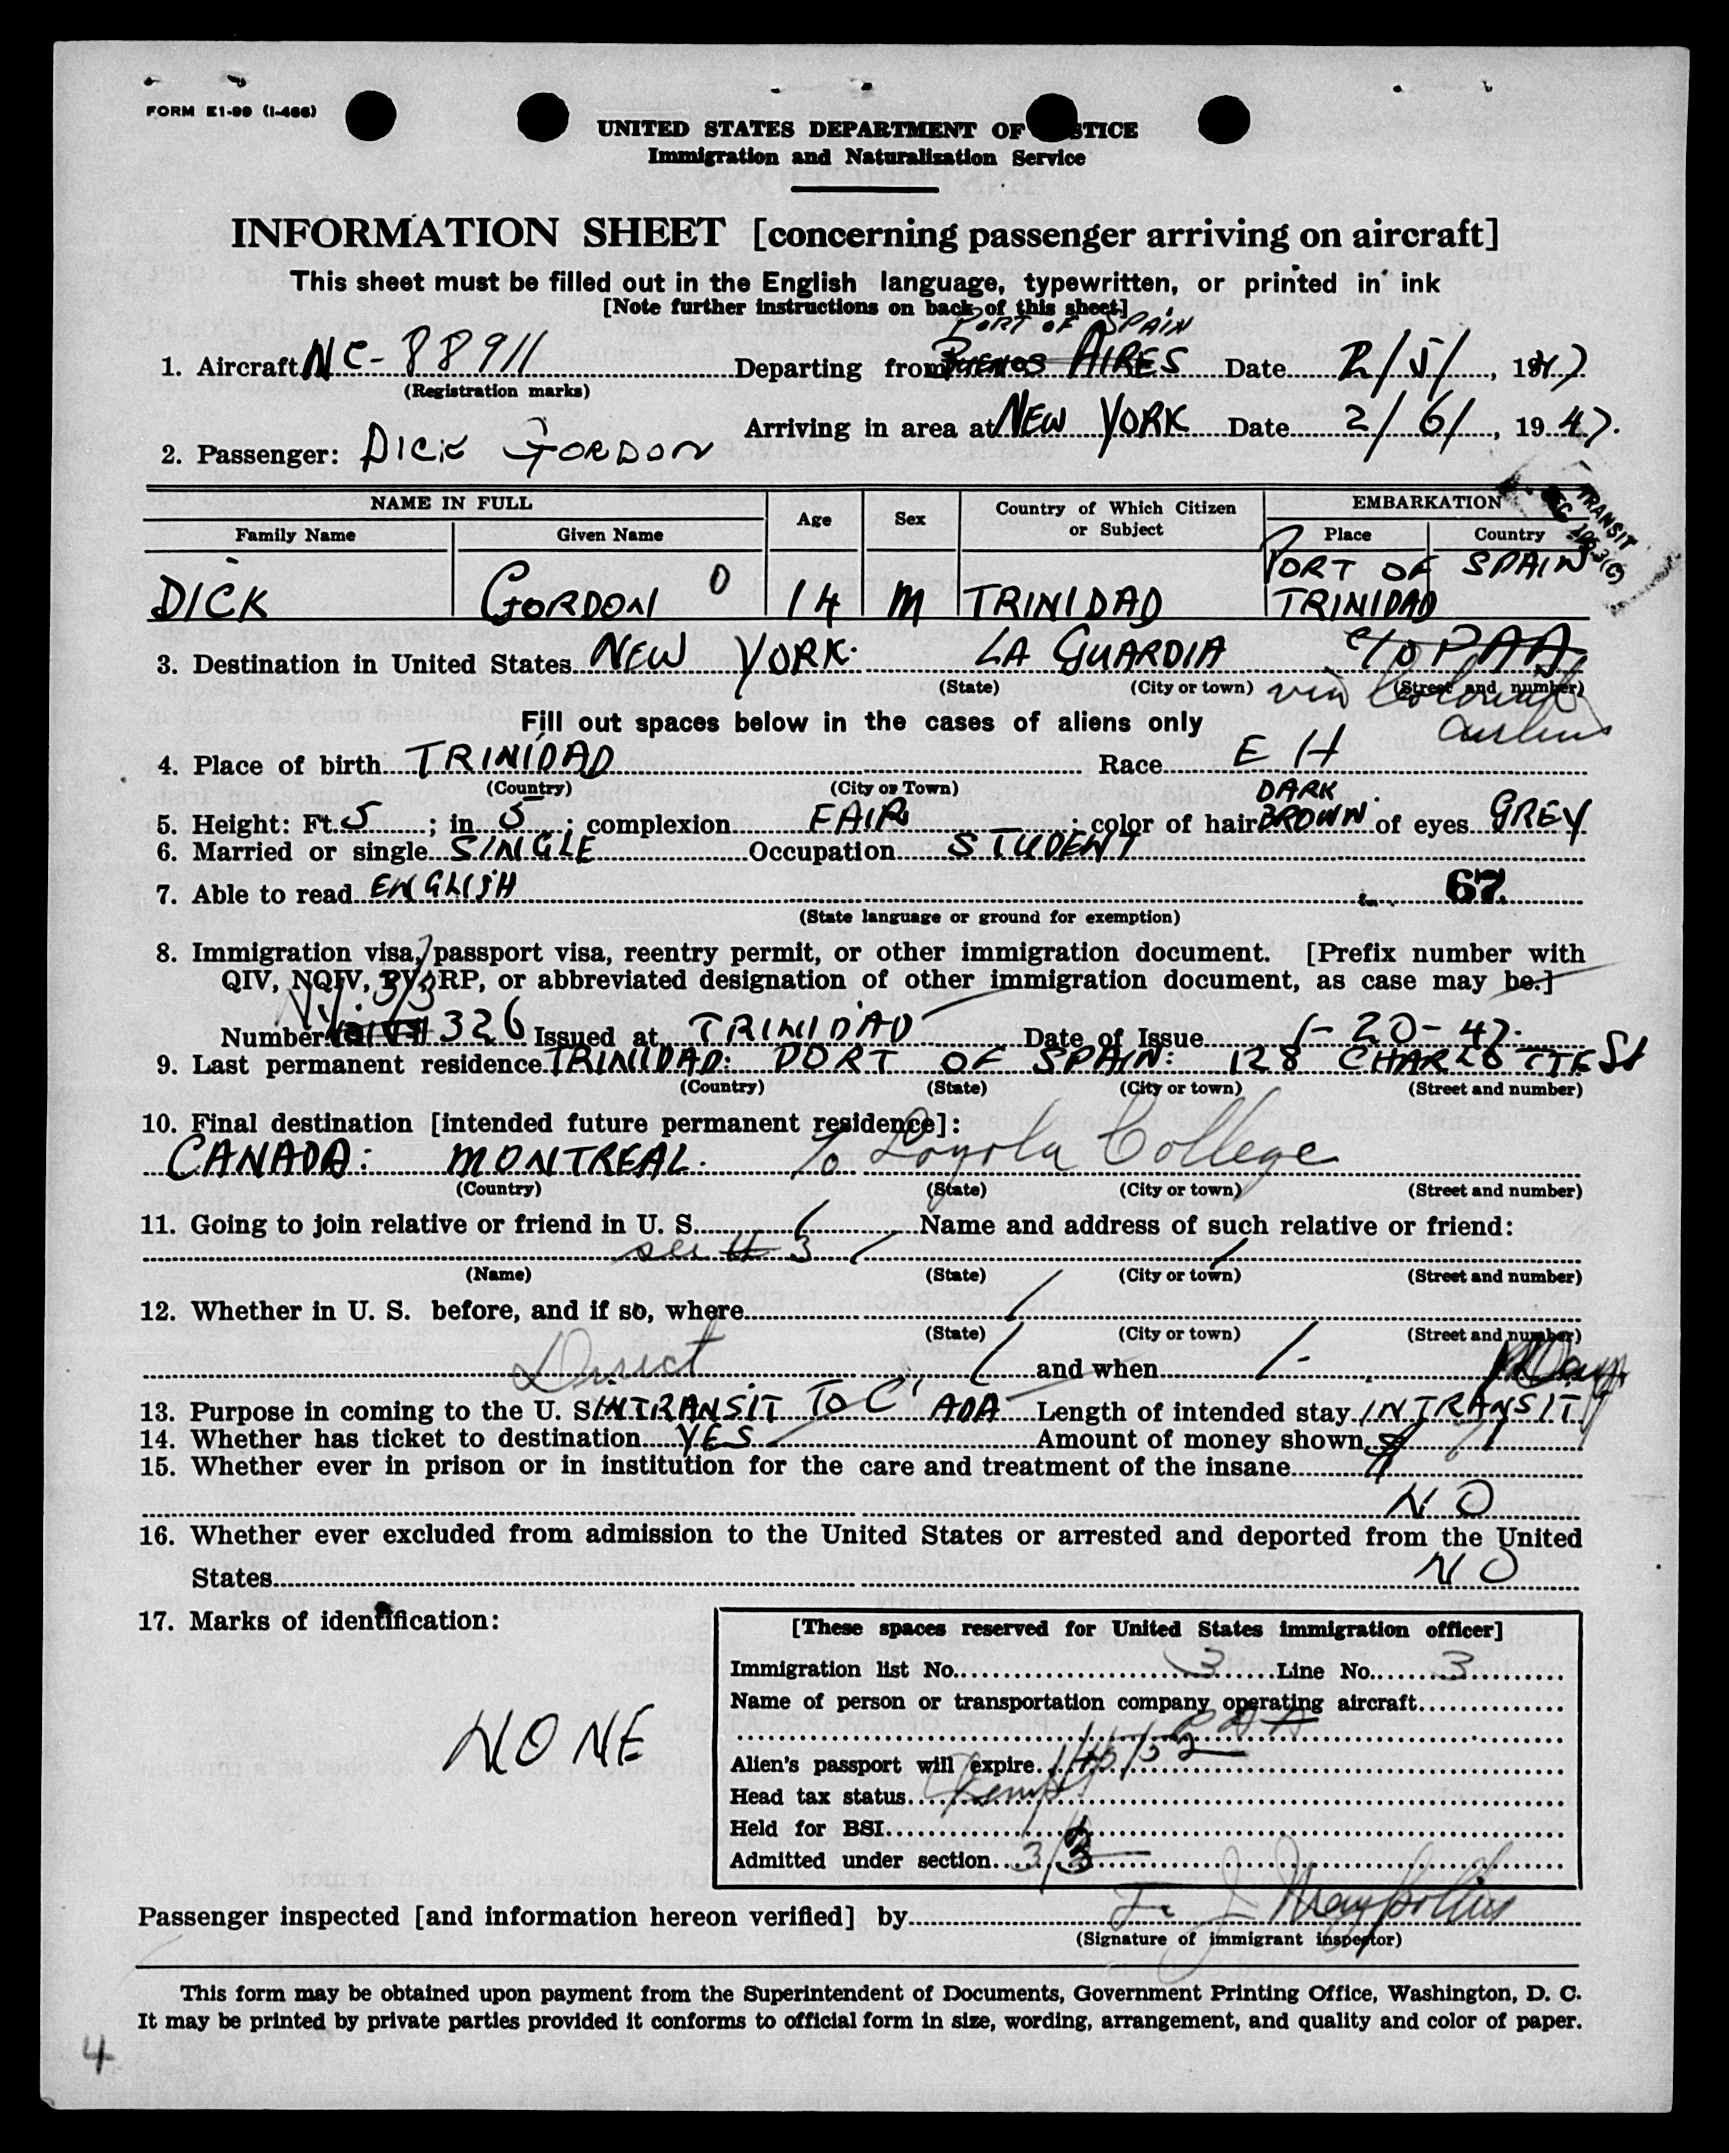 FORM E1-99 (I-466)
UNITED STATES DEPARTMENT OF STICE
Immigration and Naturalization Service
INFORMATION SHEET [concerning passenger arriving on aircraft]
This sheet must be filled out in the English language, typewritten, or printed in ink
[Note further instructions on back of this sheet]
PORT OF SPAIN
1. Aircraft NC-88911 Departing from BUENOS AIRES Date 2/5/, 1947
(Registration marks)
Arriving in area at NEW YORK Date 2/6/, 1947.
2. Passenger: DICK GORDON
NAME IN FULL Age Sex Country of Which Citizen or Subject EMBARKATION
Family Name Given Name Place Country
TRANSIT
PORT OF SPAIN
DICK GORDON 0 14 M TRINIDAD TRINIDAD
3. Destination in United States NEW YORK. LA GUARDIA c/o PAA
(State) (City or town) (Street and number)
via Colonial
Airlines
Fill out spaces below in the cases of aliens only
4. Place of birth TRINIDAD Race E H
(Country) (City or Town)
DARK
5. Height: Ft. 5; in. 5; complexion FAIR; color of hair BROWN of eyes GREY
6. Married or single SINGLE Occupation STUDENT
7. Able to read ENGLISH 67
(State language or ground for exemption)
8. Immigration visa, passport visa, reentry permit, or other immigration document. [Prefix number with
QIV, NQIV, PV, RP, or abbreviated designation of other immigration document, as case may be.]
Number 326 Issued at TRINIDAD Date of Issue 1-20-47.
9. Last permanent residence TRINIDAD: PORT OF SPAIN: 128 CHARLOTTE St
(Country) (State) (City or town) (Street and number)
10. Final destination [intended future permanent residence]:
CANADA: MONTREAL. To Loyola College
(Country) (State) (City or town) (Street and number)
11. Going to join relative or friend in U. S. / Name and address of such relative or friend:
see # 3
(Name) (State) (City or town) (Street and number)
12. Whether in U. S. before, and if so, where
(State) (City or town) (Street and number)
Direct and when
13. Purpose in coming to the U. S. INTRANSIT TO C'ADA Length of intended stay INTRANSIT
14. Whether has ticket to destination YES Amount of money shown
15. Whether ever in prison or in institution for the care and treatment of the insane
NO
16. Whether ever excluded from admission to the United States or arrested and deported from the United
States NO
17. Marks of identification:
NONE
[These spaces reserved for United States immigration officer]
Immigration list No. 3 Line No. 3
Name of person or transportation company operating aircraft
PAA
Alien's passport will expire
Head tax status
Held for BSI
Admitted under section 3/3
Passenger inspected [and information hereon verified] by
(Signature of immigrant inspector)
This form may be obtained upon payment from the Superintendent of Documents, Government Printing Office, Washington, D. C.
It may be printed by private parties provided it conforms to official form in size, wording, arrangement, and quality and color of paper.
4